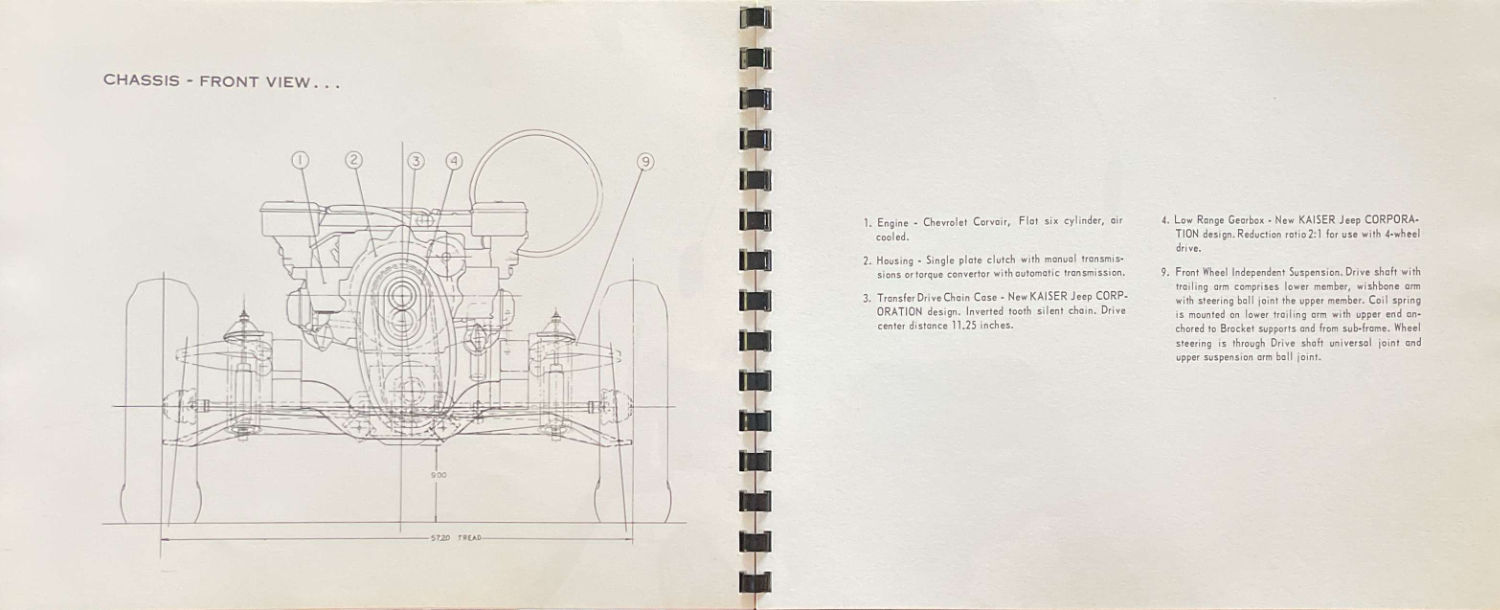 CHASSIS - FRONT VIEW...
1
2
3
4
9
9.00
57.20 TREAD
1. Engine - Chevrolet Corvair, Flat six cylinder, air
cooled.
2. Housing - Single plate clutch with manual transmis-
sions or torque convertor with automatic transmission.
3. Transfer Drive Chain Case - New KAISER Jeep CORP-
ORATION design. Inverted tooth silent chain. Drive
center distance 11.25 inches.
4. Low Range Gearbox - New KAISER Jeep CORPORA-
TION design. Reduction ratio 2:1 for use with 4-wheel
drive.
9. Front Wheel Independent Suspension. Drive shaft with
trailing arm comprises lower member, wishbone arm
with steering ball joint the upper member. Coil spring
is mounted on lower trailing arm with upper end an-
chored to Bracket supports and from sub-frame. Wheel
steering is through Drive shaft universal joint and
upper suspension arm ball joint.